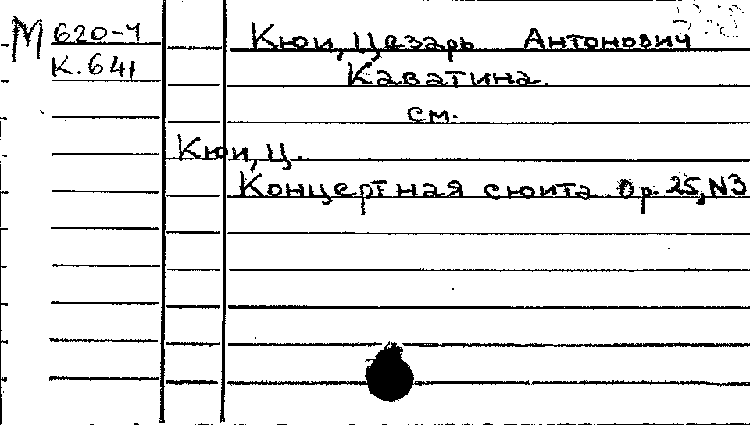 М 620-4 Кюи, Цезарь Антонович
К.641 Каватина.
см.
Кюи, Ц.
Концертная сюита Op. 25, N3